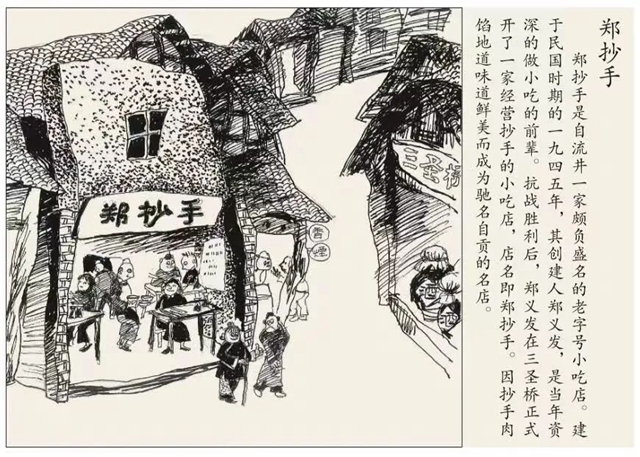 郑抄手
郑抄手是自流井一家颇负盛名的老字号小吃店。建
于民国时期的一九四五年，其创建人郑义发，是当年资
深的做小吃的前辈。抗战胜利后，郑义发在三圣桥正式
开了一家经营抄手的小吃店，店名即郑抄手。因抄手肉
馅地道味道鲜美而成为驰名自贡的名店。
郑抄手
三圣桥